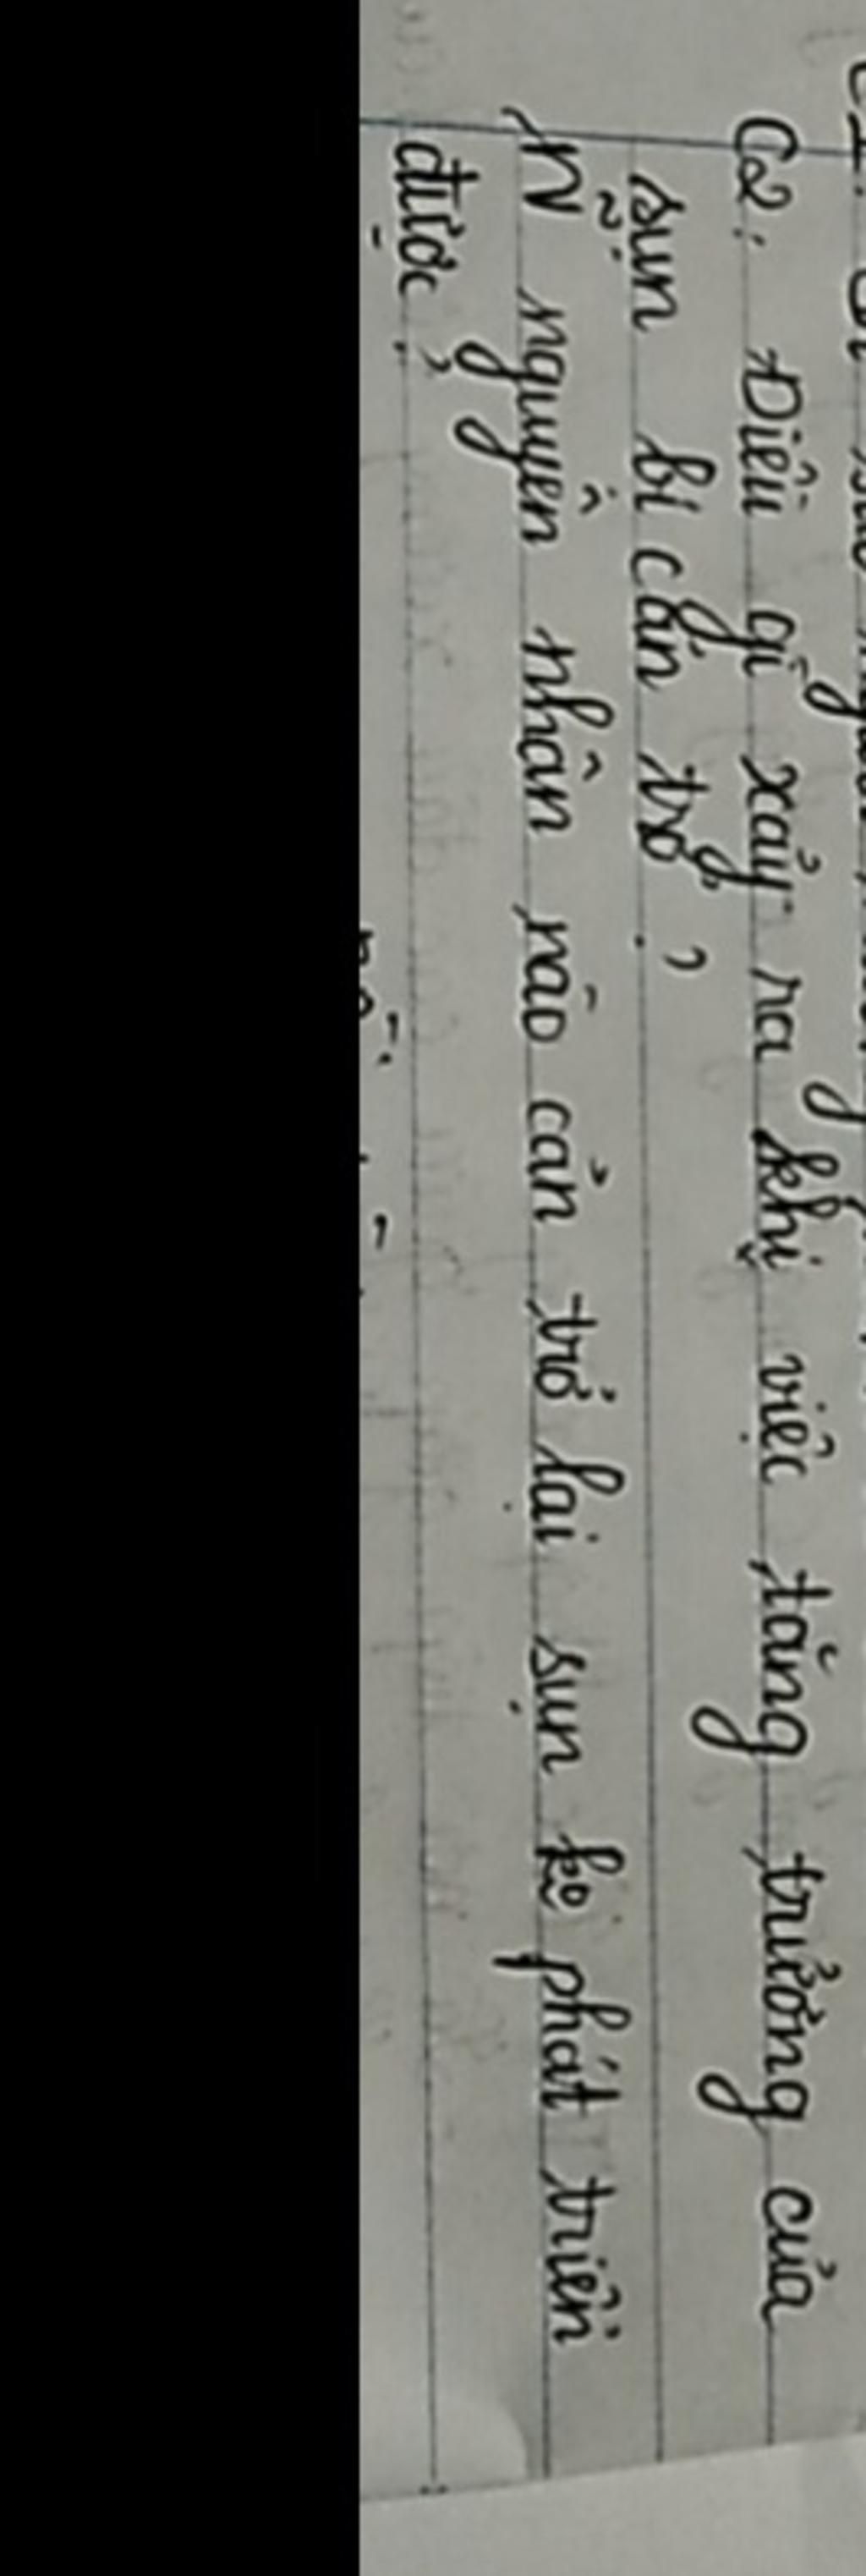 C2: Điều gì xảy ra khi việc tăng trưởng của
sụn bị cản trở?
N nguyên nhân nào cản trở lại sụn ko phát triển
được?